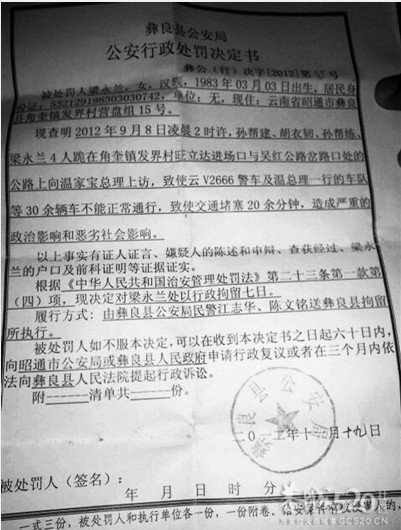 彝良县公安局
公安行政处罚决定书
彝公（行）决字[2012]第 号
被处罚人梁永兰，女，汉族，1983年03月03日出生，居民身
份证，532129198303030742，单位：无，现住：云南省昭通市彝良
县角奎镇发界村营盘组15号。
现查明2012年9月8日凌晨2时许，孙帮建、胡衣韧、孙帮练、
梁永兰4人跪在角奎镇发界村旺立达进场口与吴红公路岔路口处的
公路上向温家宝总理上访，致使云V2666警车及温总理一行的车队
等30余辆车不能正常通行，致使交通堵塞20余分钟，造成严重的
政治影响和恶劣社会影响。
以上事实有证人证言、嫌疑人的陈述和申辩、查获经过、梁永
兰的户口及前科证明等证据证实。
根据《中华人民共和国治安管理处罚法》第二十三条第一款第
（四）项，现决定对梁永兰处以行政拘留七日。
履行方式：由彝良县公安局民警江志华、陈文铭送彝良县拘留
所执行。
被处罚人如不服本决定，可以在收到本决定书之日起六十日内，
向昭通市公安局或彝良县人民政府申请行政复议或者在三个月内依
法向彝良县人民法院提起行政诉讼。
附------清单共------份。
彝良县公安局
二〇一二年十一月十九日
被处罚人（签名）：
年 月 日 时 分
一式三份，被处罚人和执行单位各一份，一份附卷。
520
GC520.CN